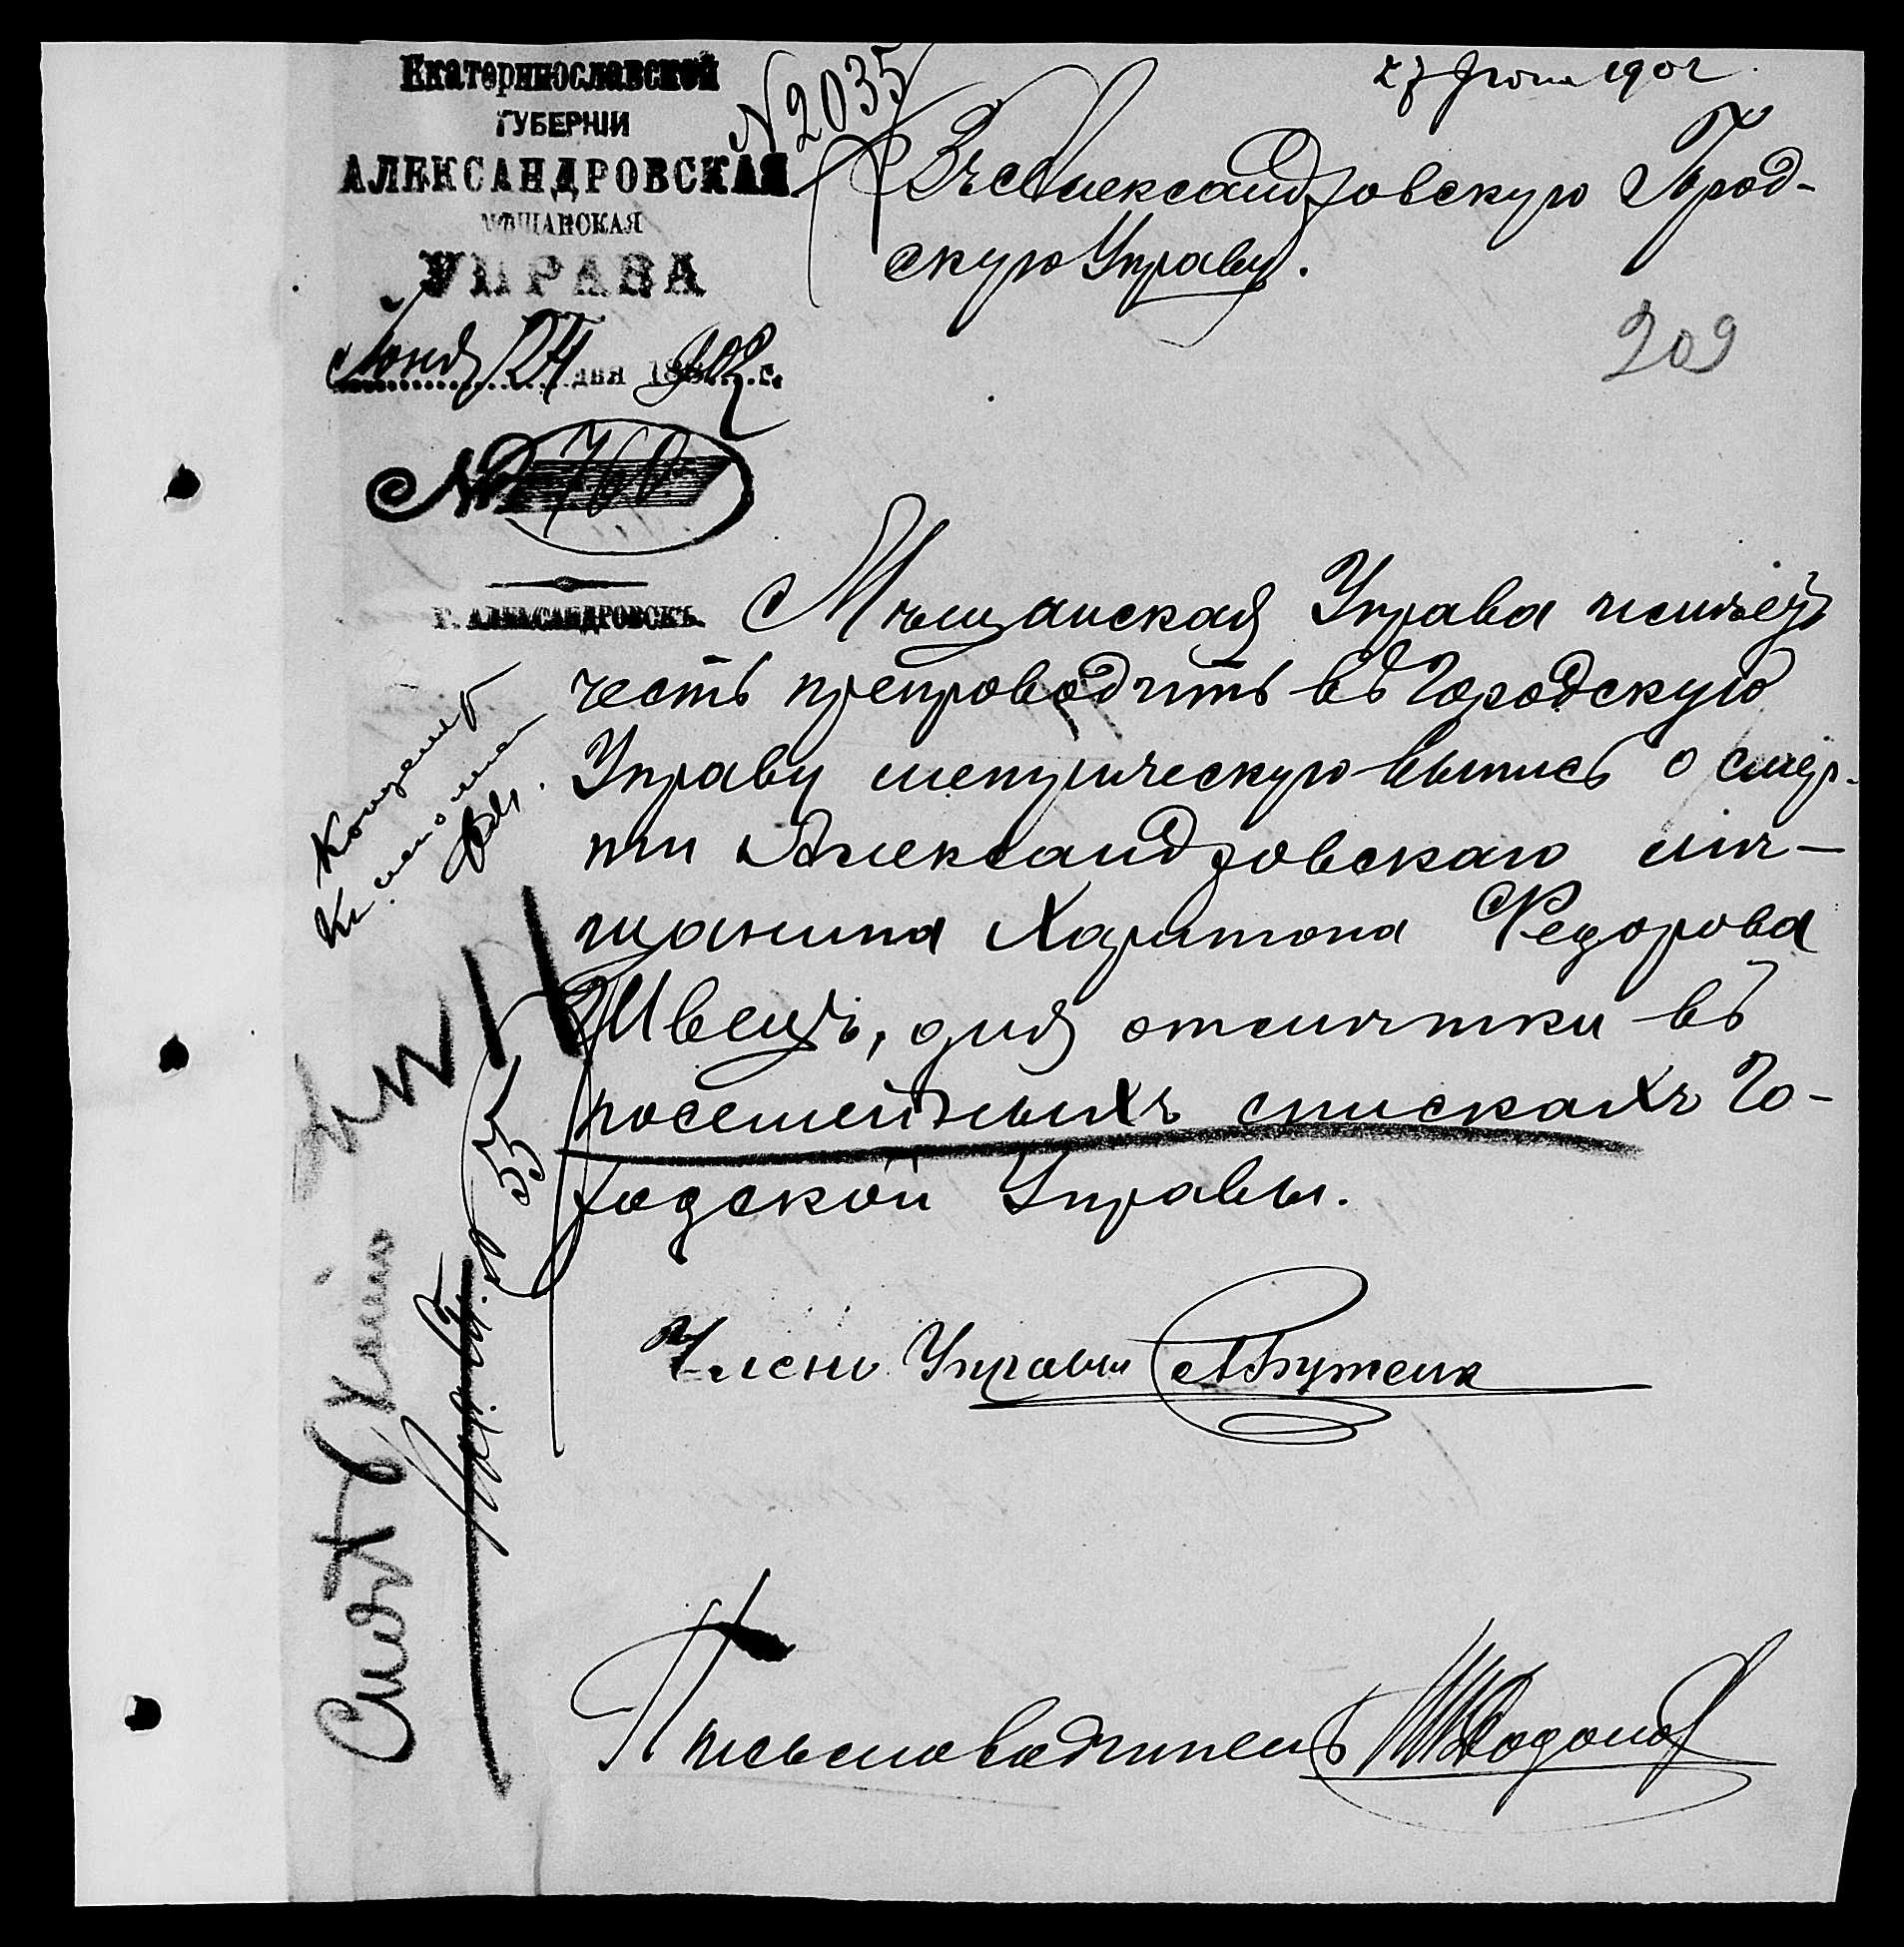 Екатеринославской
ГУБЕРНІИ
АЛЕКСАНДРОВСКАЯ
МѢЩАНСКАЯ
УПРАВА
Іюня 24 дня 1902 г.
№ 760
Г. АЛЕКСАНДРОВСКЪ.
№ 2035
27 Іюня 1902
Въ Александровскую Город-
скую Управу.
209
Мѣщанская Управа имѣетъ
честь препроводить въ Городскую
Управу метрическую выпись о смер-
ти Александровскаго мѣ-
щанина Харитона Федорова
Швецъ, для отмѣтки въ
посемейныхъ спискахъ Го-
родской Управы.
Членъ Управы
Письмоводитель
55